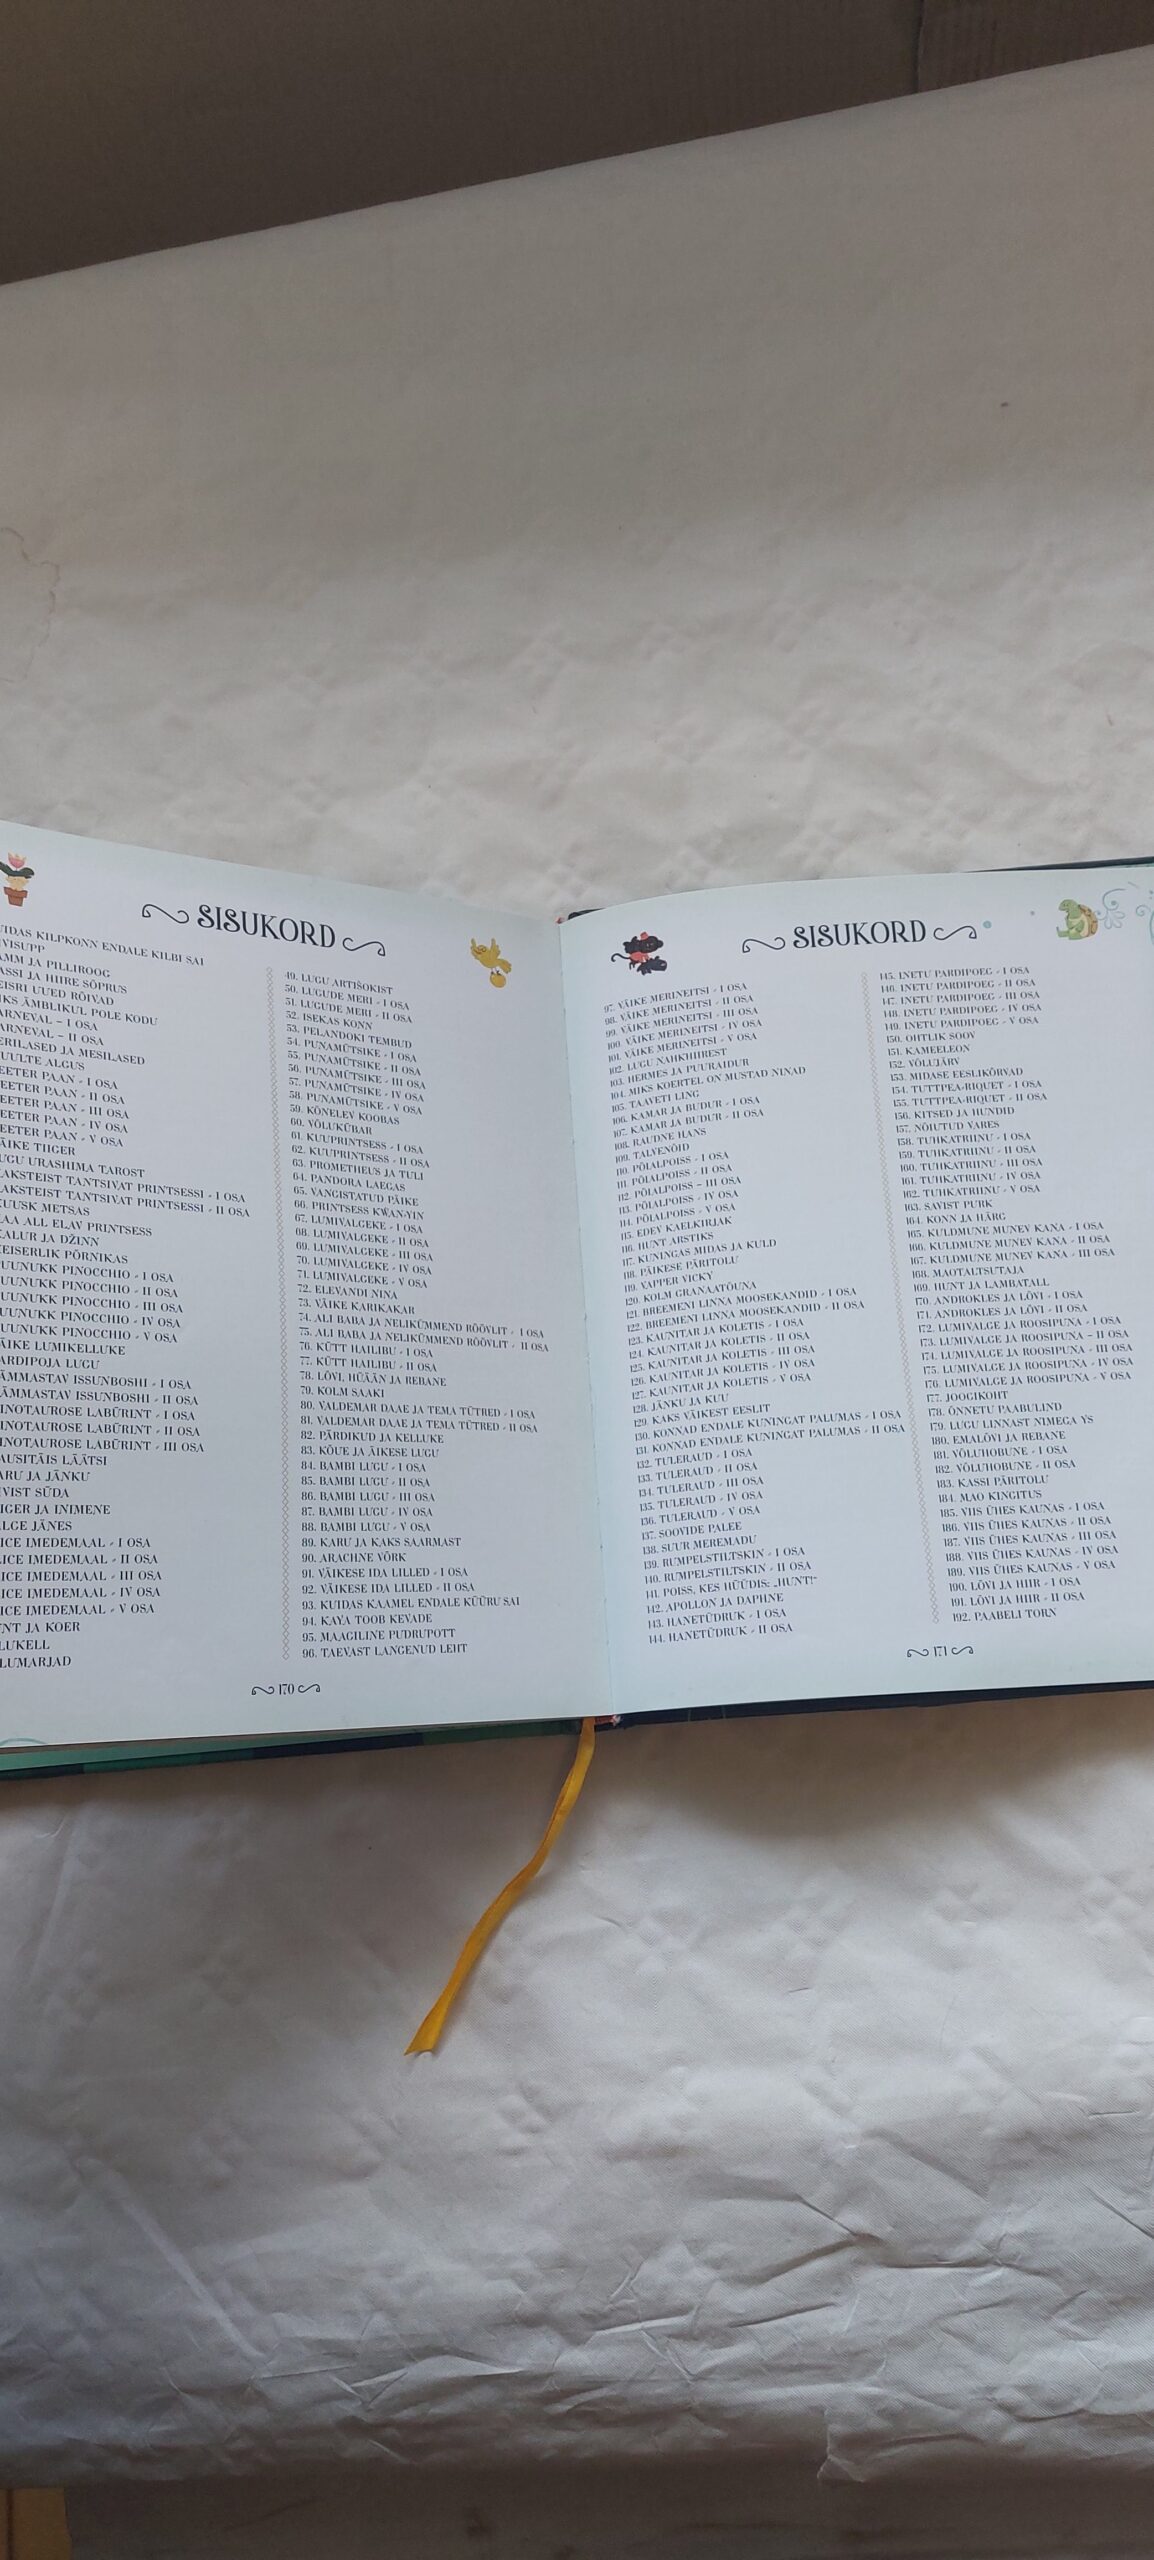 SISUKORD
UIDAS KILPKONN ENDALE KILBI SAI
IVISUPP
AMM JA PILLIROOG
ASSI JA HIIRE SÕPRUS
EISRI UUED RÕIVAD
IKS ÄMBLIKUL POLE KODU
ARNEVAL – I OSA
ARNEVAL – II OSA
ERILASED JA MESILASED
UULTE ALGUS
EETER PAAN - I OSA
EETER PAAN - II OSA
EETER PAAN - III OSA
EETER PAAN - IV OSA
EETER PAAN - V OSA
ÄIKE TIIGER
UGU URASHIMA TAROST
AKSTEIST TANTSIVAT PRINTSESSI - I OSA
AKSTEIST TANTSIVAT PRINTSESSI - II OSA
KUUSK METSAS
AA ALL ELAV PRINTSESS
KALUR JA DŽINN
KEISERLIK PÕRNIKAS
UUNUKK PINOCCHIO - I OSA
UUNUKK PINOCCHIO - II OSA
UUNUKK PINOCCHIO - III OSA
UUNUKK PINOCCHIO - IV OSA
UUNUKK PINOCCHIO - V OSA
ÄIKE LUMIKELLUKE
ARDIPOJA LUGU
ÄMMASTAV ISSUNBOSHI - I OSA
ÄMMASTAV ISSUNBOSHI - II OSA
INOTAUROSE LABÜRINT - I OSA
INOTAUROSE LABÜRINT - II OSA
INOTAUROSE LABÜRINT - III OSA
AUSITÄIS LÄÄTSI
ARU JA JÄNKU
IVIST SÜDA
IGER JA INIMENE
LGE JÄNES
ICE IMEDEMAAL - I OSA
ICE IMEDEMAAL - II OSA
ICE IMEDEMAAL - III OSA
ICE IMEDEMAAL - IV OSA
ICE IMEDEMAAL - V OSA
NT JA KOER
LUKELL
LUMARJAD
49. LUGU ARTIŠOKIST
50. LUGUDE MERI - I OSA
51. LUGUDE MERI - II OSA
52. ISEKAS KONN
53. PELANDOKI TEMBUD
54. PUNAMÜTSIKE - I OSA
55. PUNAMÜTSIKE - II OSA
56. PUNAMÜTSIKE - III OSA
57. PUNAMÜTSIKE - IV OSA
58. PUNAMÜTSIKE - V OSA
59. KÕNELEV KOOBAS
60. VÕLUKÜBAR
61. KUUPRINTSESS - I OSA
62. KUUPRINTSESS - II OSA
63. PROMETHEUS JA TULI
64. PANDORA LAEGAS
65. VANGISTATUD PÄIKE
66. PRINTSESS KWAN-YIN
67. LUMIVALGEKE - I OSA
68. LUMIVALGEKE - II OSA
69. LUMIVALGEKE - III OSA
70. LUMIVALGEKE - IV OSA
71. LUMIVALGEKE - V OSA
72. ELEVANDI NINA
73. VÄIKE KARIKAKAR
74. ALI BABA JA NELIKÜMMEND RÖÖVLIT - I OSA
75. ALI BABA JA NELIKÜMMEND RÖÖVLIT - II OSA
76. KÜTT HAILIBU - I OSA
77. KÜTT HAILIBU - II OSA
78. LÕVI, HÜÄÄN JA REBANE
79. KOLM SAAKI
80. VALDEMAR DAAE JA TEMA TÜTRED - I OSA
81. VALDEMAR DAAE JA TEMA TÜTRED - II OSA
82. PÄRDIKUD JA KELLUKE
83. KÕUE JA ÄIKESE LUGU
84. BAMBI LUGU - I OSA
85. BAMBI LUGU - II OSA
86. BAMBI LUGU - III OSA
87. BAMBI LUGU - IV OSA
88. BAMBI LUGU - V OSA
89. KARU JA KAKS SAARMAST
90. ARACHNE VÕRK
91. VÄIKESE IDA LILLED - I OSA
92. VÄIKESE IDA LILLED - II OSA
93. KUIDAS KAAMEL ENDALE KÜÜRU SAI
94. KAYA TOOB KEVADE
95. MAAGILINE PUDRUPOTT
96. TAEVAST LANGENUD LEHT
170
SISUKORD
97. VÄIKE MERINEITSI - I OSA
98. VÄIKE MERINEITSI - II OSA
99. VÄIKE MERINEITSI - III OSA
100. VÄIKE MERINEITSI - IV OSA
101. VÄIKE MERINEITSI - V OSA
102. LUGU NAHKHIIREST
103. HERMES JA PUURAIDUR
104. MIKS KOERTEL ON MUSTAD NINAD
105. TAAVETI LING
106. KAMAR JA BUDUR - I OSA
107. KAMAR JA BUDUR - II OSA
108. RAUDNE HANS
109. TALVENÕID
110. PÖIALPOISS - I OSA
111. PÖIALPOISS - II OSA
112. PÖIALPOISS – III OSA
113. PÖIALPOISS - IV OSA
114. PÖIALPOISS - V OSA
115. EDEV KAELKIRJAK
116. HUNT ARSTIKS
117. KUNINGAS MIDAS JA KULD
118. PÄIKESE PÄRITOLU
119. VAPPER VICKY
120. KOLM GRANAATÕUNA
121. BREEMENI LINNA MOOSEKANDID - I OSA
122. BREEMENI LINNA MOOSEKANDID - II OSA
123. KAUNITAR JA KOLETIS - I OSA
124. KAUNITAR JA KOLETIS - II OSA
125. KAUNITAR JA KOLETIS - III OSA
126. KAUNITAR JA KOLETIS - IV OSA
127. KAUNITAR JA KOLETIS - V OSA
128. JÄNKU JA KUU
129. KAKS VÄIKEST EESLIT
130. KONNAD ENDALE KUNINGAT PALUMAS - I OSA
131. KONNAD ENDALE KUNINGAT PALUMAS - II OSA
132. TULERAUD - I OSA
133. TULERAUD - II OSA
134. TULERAUD - III OSA
135. TULERAUD - IV OSA
136. TULERAUD - V OSA
137. SOOVIDE PALEE
138. SUUR MEREMADU
139. RUMPELSTILTSKIN - I OSA
140. RUMPELSTILTSKIN - II OSA
141. POISS, KES HÜÜDIS: „HUNT!"
142. APOLLON JA DAPHNE
143. HANETÜDRUK - I OSA
144. HANETÜDRUK - II OSA
145. INETU PARDIPOEG - I OSA
146. INETU PARDIPOEG - II OSA
147. INETU PARDIPOEG - III OSA
148. INETU PARDIPOEG - IV OSA
149. INETU PARDIPOEG - V OSA
150. OHTLIK SOOV
151. KAMEELEON
152. VÕLUJÄRV
153. MIDASE EESLIKÕRVAD
154. TUTTPEA-RIQUET - I OSA
155. TUTTPEA-RIQUET - II OSA
156. KITSED JA HUNDID
157. NÕIUTUD VARES
158. TUHKATRIINU - I OSA
159. TUHKATRIINU - II OSA
160. TUHKATRIINU - III OSA
161. TUHKATRIINU - IV OSA
162. TUHKATRIINU - V OSA
163. SAVIST PURK
164. KONN JA HÄRG
165. KULDMUNE MUNEV KANA - I OSA
166. KULDMUNE MUNEV KANA - II OSA
167. KULDMUNE MUNEV KANA - III OSA
168. MAOTALTSUTAJA
169. HUNT JA LAMBATALL
170. ANDROKLES JA LÕVI - I OSA
171. ANDROKLES JA LÕVI - II OSA
172. LUMIVALGE JA ROOSIPUNA - I OSA
173. LUMIVALGE JA ROOSIPUNA – II OSA
174. LUMIVALGE JA ROOSIPUNA - III OSA
175. LUMIVALGE JA ROOSIPUNA - IV OSA
176. LUMIVALGE JA ROOSIPUNA - V OSA
177. JOOGIKOHT
178. ÕNNETU PAABULIND
179. LUGU LINNAST NIMEGA YS
180. EMALÕVI JA REBANE
181. VÕLUHOBUNE - I OSA
182. VÕLUHOBUNE - II OSA
183. KASSI PÄRITOLU
184. MAO KINGITUS
185. VIIS ÜHES KAUNAS - I OSA
186. VIIS ÜHES KAUNAS - II OSA
187. VIIS ÜHES KAUNAS - III OSA
188. VIIS ÜHES KAUNAS - IV OSA
189. VIIS ÜHES KAUNAS - V OSA
190. LÕVI JA HIIR - I OSA
191. LÕVI JA HIIR - II OSA
192. PAABELI TORN
171